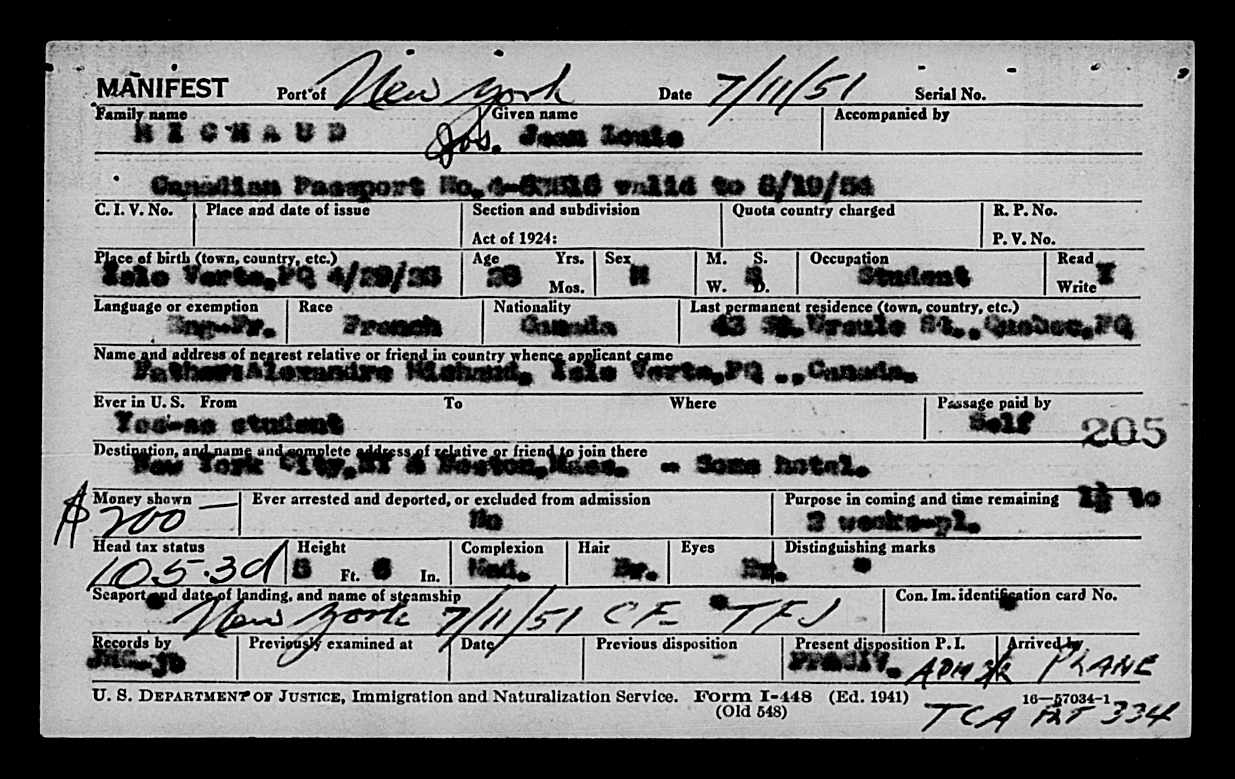 MANIFEST Port of New York Date 7/11/51 Serial No.
Family name Given name Accompanied by
MICHAUD Jos. Jean Louis
Canadian Passport No. valid to
C. I. V. No. Place and date of issue Section and subdivision Quota country charged R. P. No.
Act of 1924: P. V. No.
Place of birth (town, country, etc.) Age Yrs. Sex M. S. Occupation Read
Isle Verte, PQ M S Student Y
Mos. W. D. Write
Language or exemption Race Nationality Last permanent residence (town, country, etc.)
Eng-Fr. French Canada 43 St. Ursule St., Quebec, PQ
Name and address of nearest relative or friend in country whence applicant came
Father: Alexandre Michaud, Isle Verte, PQ ., Canada.
Ever in U. S. From To Where Passage paid by
Yes-as student Self 205
Destination, and name and complete address of relative or friend to join there
New York City, NY & Boston, Mass. - Some hotel.
Money shown Ever arrested and deported, or excluded from admission Purpose in coming and time remaining 1½ to
$ 200— No 2 weeks-pl.
Head tax status Height Complexion Hair Eyes Distinguishing marks
105.3d 5 Ft. 6 In. Med. Br. Br.
Seaport and date of landing, and name of steamship Con. Im. identification card No.
New York 7/11/51 CF- TFJ
Records by Previously examined at Date Previous disposition Present disposition P. I. Arrived by
PLANE
U. S. DEPARTMENT OF JUSTICE, Immigration and Naturalization Service. Form I-448 (Ed. 1941) 16—57034-1
(Old 548) TCA FLT 334